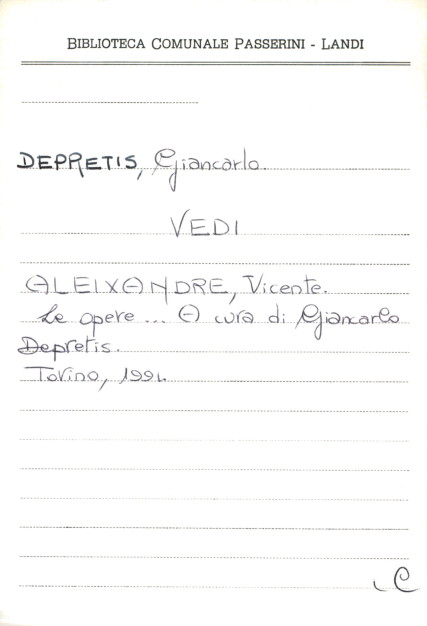 BIBLIOTECA COMUNALE PASSERINI - LANDI
DEPRETIS, Giancarlo.
VEDI
ALEIXANDRE, Vicente.
Le opere ... A cura di Giancarlo
Depretis.
Torino, 1991.